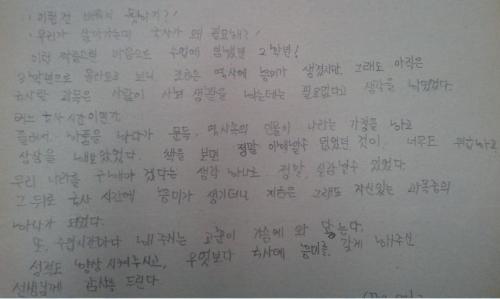 '이런건 배워서 뭣하지?'
'우리가 살아가는데 국사가 왜 필요해?'
이런 마음으로 수업에 임했던 2학년!
3학년으로 올라오고 보니, 조금은 역사에 흥미가 생겼지만, 그래도 아직은
국사란 과목은 사람이 사회 생활을 하는데는 필요없다고 생각을 하였었다.
어느 국사 시간이던가
졸려서, 하품을 하다가 문득, 역사속의 인물이 나라는 가정을 하고
상상을 해보았었다. 책을 보면 정말 아무것도 없었던 것이, 너무도 쉽고
우리 나라를 구해야 겠다는 생각 하나로, 정말, 실감날수 있었다.
그 뒤로 국사 시간에 흥미가 생기더니, 지금은 그래도 자신있는 과목중의
하나가 되었다.
또, 수업시간마다 해주시는 교훈이 가슴에 와 닿는다.
성적도 향상 시켜주시고, 무엇보다 국사에 흥미를 갖게 해주신
선생님께 감사를 드린다.